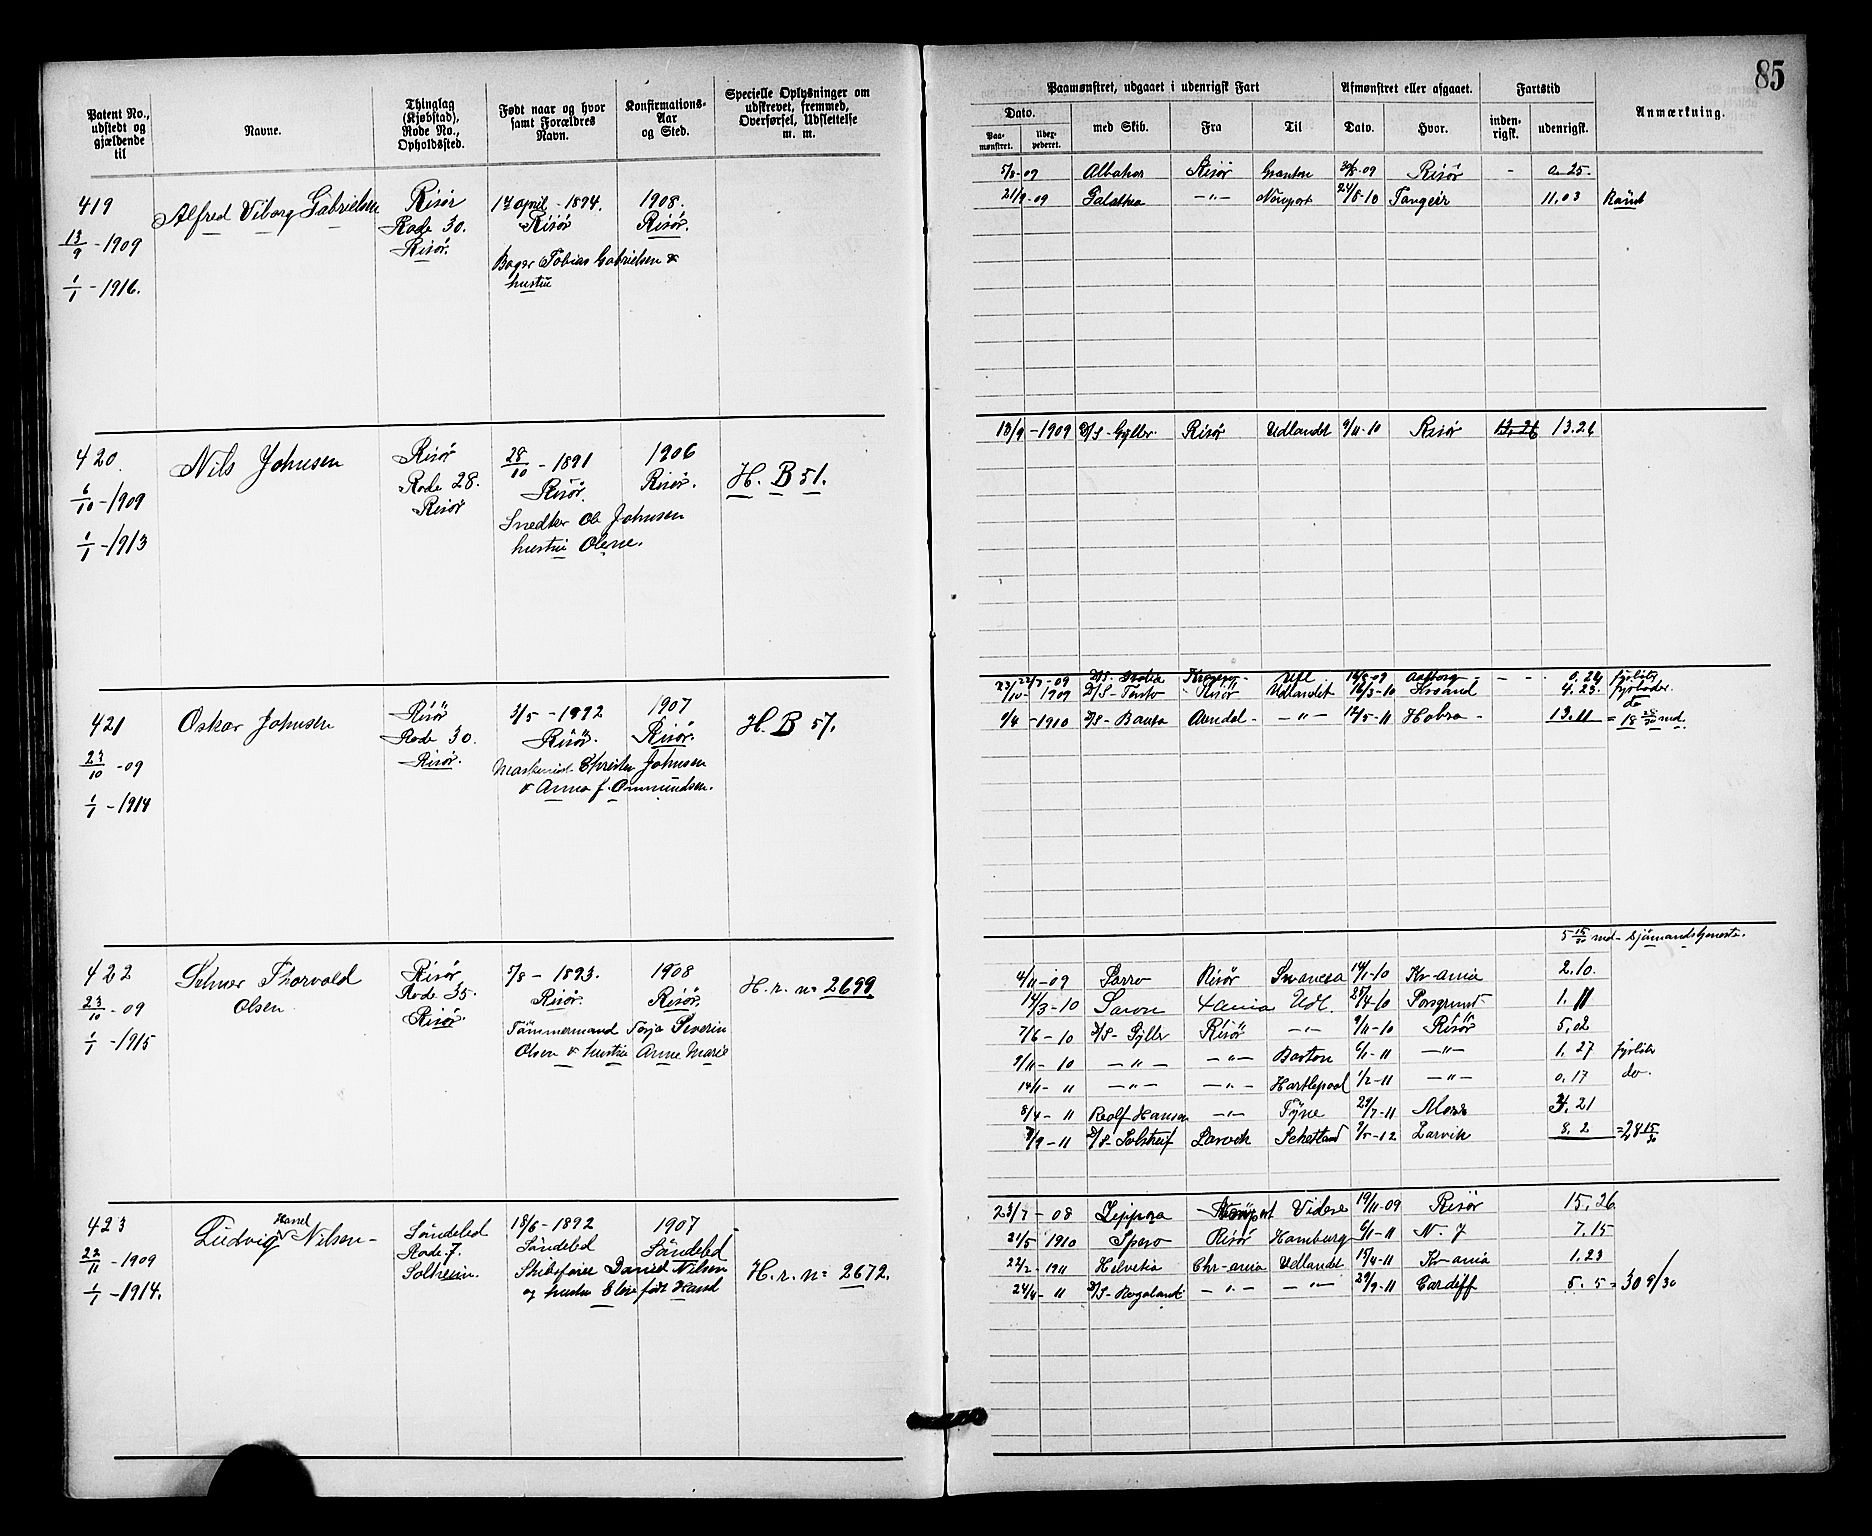 85
Patent No., udstedt og gjældende til
Navne.
Thinglag (Kjøbstad), Rode No., Opholdssted.
Født naar og hvor samt Forældres Navn.
Konfirmations- Aar og Sted.
Specielle Oplysninger om udskrevet, fremmed, Overførsel, Udslettelse m. m.
Paamønstret, udgaaet i udenrigsk Fart
Afmønstret eller afgaaet.
Fartstid
Anmærkning.
Dato.
med Skib.
Fra
Til
Dato.
Hvor.
inden-rigsk.
udenrigsk.
Paa-mønstret.
419
13/9 - 1909
1/1 - 1916.
Alfred Viborg Gabrielsen
Risør
Rode 30.
Risør.
14 april - 1894.
Risør
Bager Tobias Gabrielsen &
hustru
1908.
Risør.
5/8-09 Albatros Risør Granton 30/8-09 Risør - 0.25.
21/9-09 Galathea -"- Newport 24/8-10 Tangier 11.03 Rømt
420.
6/10 - 1909
1/1 - 1913
Nils Johnsen
Risør
Rode 28.
Risør
28/10 - 1891
Risør.
Snedker Ole Johnsen
hustru Olene.
1906
Risør.
H. B 51.
13/9 - 1909 D/S - Gyller Risør Udlandet 9/11-10 Risør 13.26 13.26
421
23/10 - 09
1/1 - 1914
Oskar Johnsen
Risør
Rode 30.
Risør.
3/5 - 1892
Risør.
Maskinist Christen Johnsen
& Anna f. Ommundsen.
1907
Risør.
H. B 57.
22/7-09 D/S - Udl. 16/8-09 Aalborg - - 0.24 fyrbøter
23/10 - 1909 D/S - Risør Udlandet 16/3-10 Krsand 4.23. fyrbøder
9/4 - 1910 D/S - Arendal - -"- 12/5-11 Hobro - 13.11 do = 18 28/30 md.
422
23/10 - 09
1/1 - 1915
Selmer Thorvald
Olsen
Risør
Rode 35.
Risør.
5/8 - 1893.
Risør.
Tømmermand Terje Severin
Olsen & hustru Anne Marie
1908
Risør.
H. r. no 2699
5 15/30 md - Sjömandstjeneste.
4/11-09 Risør Swansea 14/1-10 Kr-ania 2.10.
14/3-10 Saron Xania Udl. 25/4-10 Porsgrund 1. 11
7/6 - 10 D/S - Gyller Risør -"- 9/11-10 Risør 5.02
9/11 - 10 -"- -"- Boston 6/1-11 -"- 1.27 fyrbøter
14/1 - 11 -"- -"- Hartlepool 1/2-11 -"- 0.17 do.
8/4 - 11 Reolf Hansen -"- Tyne 29/7-11 Moss 3.21
3/9 - 11 D/S - Larvik Schetland 5/5-12 Larvik 8.2 = 28 15/30
423
22/11 - 1909
1/1 - 1914.
Hassel
Ludvig Nilsen -
Söndeled
Rode 7.
Solheim.
18/6 - 1892
Söndeled
Skibsfører Daniel Nilsen
og hustru Elise født Hassel
1907
Söndeled
H. r. no 2672.
23/7 - 08 Newport Videre 19/11-09 Risør 15.26
21/5 1910 Spero Risør Hamburg 6/1-11 N. J 7.15
22/2 - 1911 Helvetia Chr-ania Udlandet 15/4-11 Kr-ania 1.23
24/4 - 11 D/S - Rogaland -"- -"- 29/9-11 Cardiff 5. 5 = 30 9/30